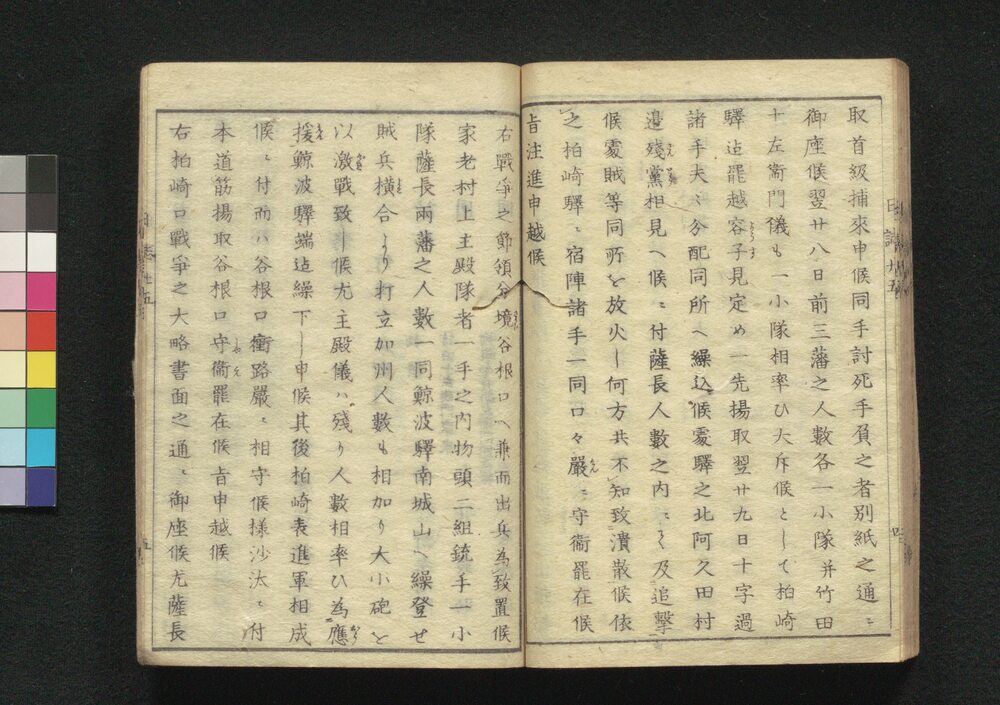 取首級捕來申候同手討死手負之者別紙之通ニ
御座候翌廿八日前三藩之人數各一小隊并竹田
十左衞門儀も一小隊相率ひ大斥候として柏崎
驛迠罷越容子見定め一先揚取翌廿九日十字過
諸手夫々分配同所へ繰込候處驛之北阿久田村
邉殘黨相見へ候ニ付薩長人數之内ニて及追擊
候處賊等同所を放火し何方共不知致潰散候依
之柏崎驛ニ宿陣諸手一同口々嚴ニ守衞罷在候
旨注進申越候
右戰爭之節領分境谷根口へ兼而出兵為致置候
家老村上主殿隊者一手之内物頭二組銃手一小
隊薩長兩藩之人數一同鯨波驛南城山へ繰登せ
賊兵橫合より打立加州人數も相加り大小砲を
以激戰致し候尤主殿儀ハ殘り人數相率ひ為應
援鯨波驛端迠繰下し申候其後柏崎表進軍相成
候ニ付而ハ谷根口衝路嚴ニ相守候樣沙汰ニ付
本道筋揚取谷根口守衞罷在候旨申越候
右柏崎口戰爭之大略書面之通ニ御座候尤薩長